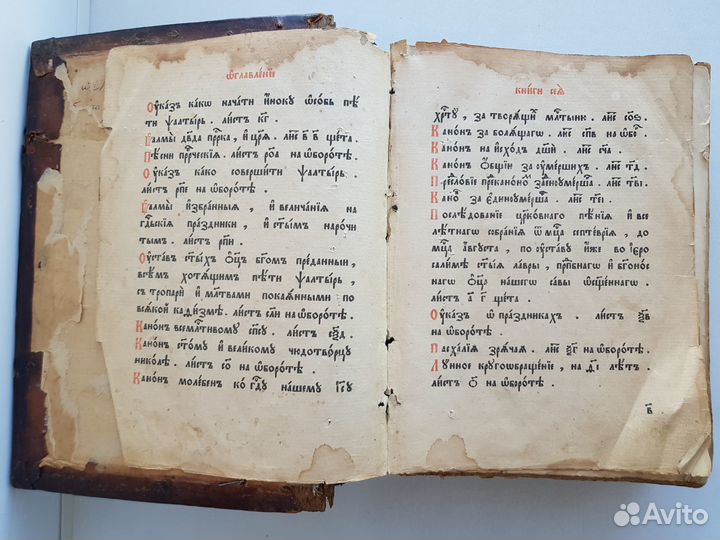 Ѡ҆главле́нїе
Оу҆ка́зъ ка́кѡ нача́ти и҆́нокꙋ ѡ҆со́бь пѣ́
ти ѱалты́рь . ли́стъ к҃г .
Ѱалмы̀ дв҃да прⷪ҇рка , и҆ цр҃ѧ̀ . ли́с в҃ в҃ ще́та .
Пѣ́сни прⷪ҇рческїѧ . ли́стъ ро҃а на ѡ҆боро́тѣ .
Оу҆ка́зъ ка́ко соверши́ти ѱалты́рь
ли́стъ рп҃е на ѡ҆боро́тѣ .
Ѱалмы̀ и҆збра́нныѧ , и҆ велича́нїѧ на
гдⷭ҇ьскїѧ пра́здники , и҆ ст҃ы́мъ наро́чи
тымъ . ли́стъ рп҃и .
Оу҆ста́въ ст҃ы́хъ ѻ҆ц҃ъ бг҃омъ пре́данныи ,
всѣ́мъ хотѧ́щимъ пѣ́ти ѱалты́рь ,
съ тропарѝ и҆ мл҃твами покаѧ́нными по
всѧ́кой каѳи́змѣ . ли́стъ на ѡ҆боро́тѣ .
Кано́нъ всемлⷭ҇тивому сп҃сꙋ . ли́стъ
Кано́нъ ст҃о́мꙋ и҆ вели́комꙋ чюдотво́рцꙋ
нико́лѣ . ли́стъ со҃ на ѡ҆боро́тѣ .
Кано́нъ моле́бенъ ко гдⷭ҇ꙋ на́шемꙋ і҆с҃ꙋ
Кни́ги сеѧ̀
хрⷭ҇тꙋ̀ , за творѧ́щїѧ млⷭ҇тыню . ли́с со҃ѕ .
Кано́нъ за болѧ́щагѡ . ли́с сп҃в на ѡ҆бо́т .
Кано́нъ на и҆схо́д дш҃и . ли́с сч҃а .
Кано́нъ о҆́бщїи за оу҆ме́ршихъ . ли́с т҃д .
Пресло́вїе за є҆диноуме́рша . ли́с тв҃і .
Кано́ за є҆диноуме́рша . ли́с те҃і .
Послѣ́дованїе цр҃ко́внагѡ пѣ́нїѧ и҆ все
лѣ́тнагѡ собра́нїѧ ѿ мцⷭ҇а септе́врїѧ , до
мцⷭ҇а а҆́вгꙋста , по оу҆ста́вꙋ и҆́же во і҆еро
сали́мѣ ст҃ы́ѧ ла́вры , прпⷣбнагѡ и҆ бг҃оно́с
нагѡ ѻ҆ц҃а̀ на́шегѡ са́вы ѡ҆сщ҃е́ннагѡ .
ли́стъ а҃ г҃ ще́та .
Оу҆ка́зъ ѡ҆ пра́здникахъ . ли́стъ
на ѡ҆боро́тѣ .
Пасха́лїѧ зрѧ́чаѧ . ли́с на ѡ҆боро́тѣ .
Лу́нное крꙋгоѡбраще́нїе , на ѳ҃і лѣ́тъ .
ли́стъ на ѡ҆боро́тѣ .
в҃
Avito